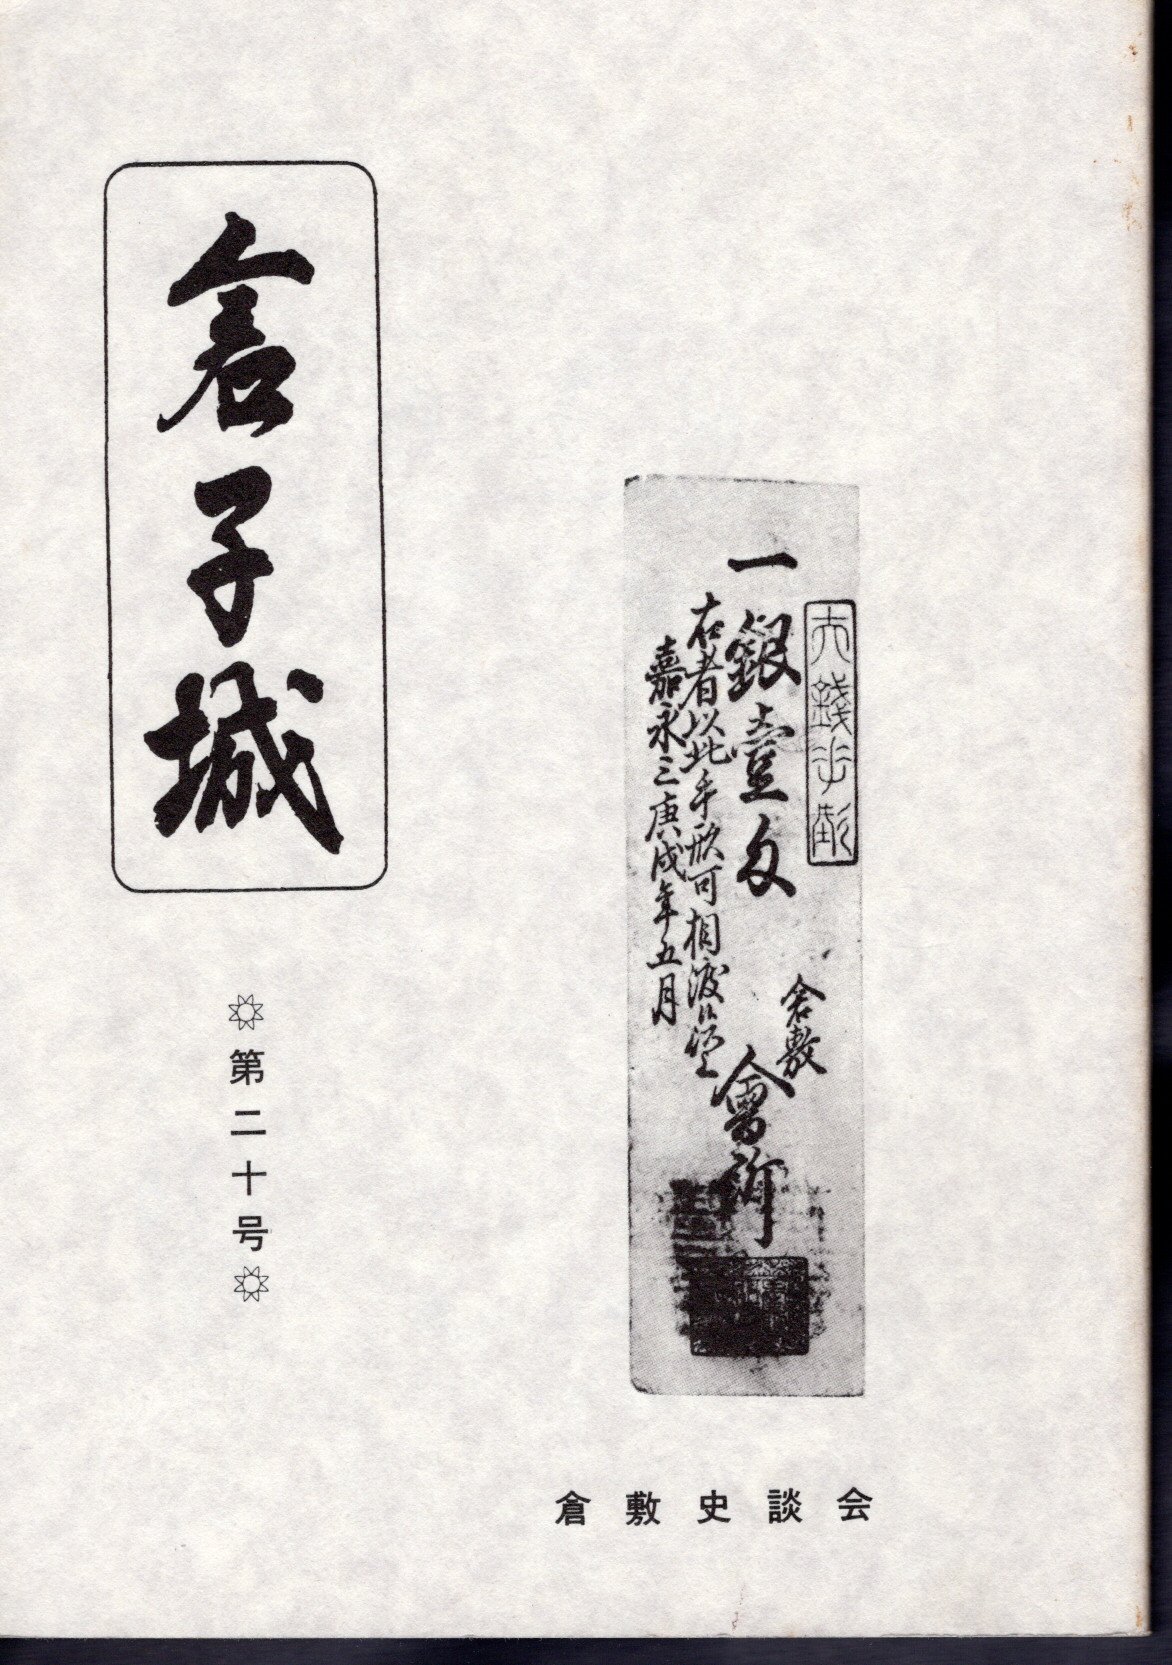 倉子城
第二十号
一銀壹匁
右者以此手形可相渡候
嘉永三庚戌年五月
倉敷
會所
倉敷史談会